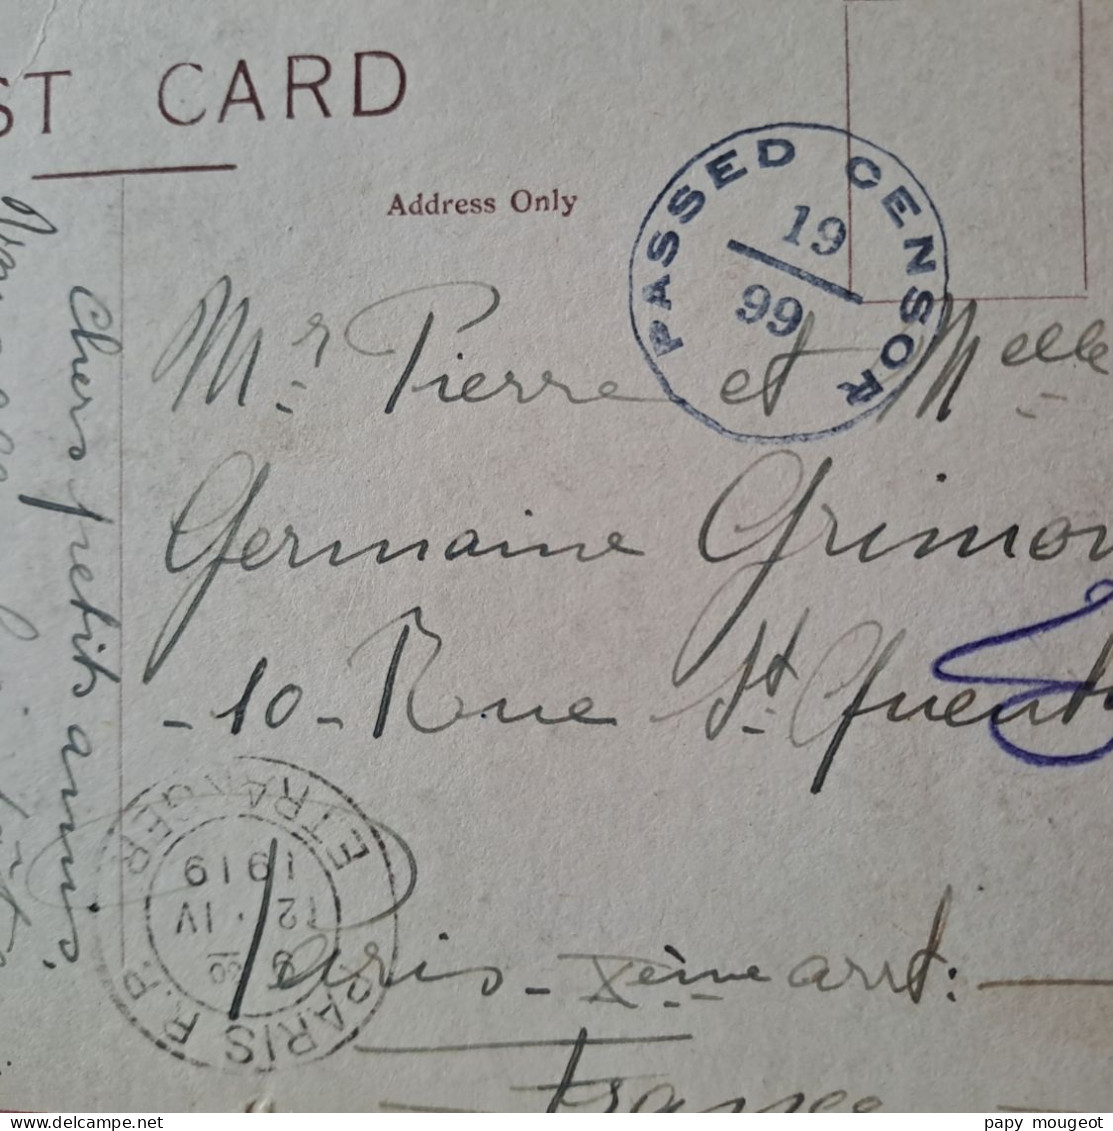 ST CARD
Address Only
PASSED CENSOR
19
99
Mr. Pierre et Melle
Germaine Grimon
- 10 - Rue St. Quent
Paris - Xème arrt:
France
Chers petits amis.
PARIS R.P. ETRANGER
12 IV
1919
papy mougeot